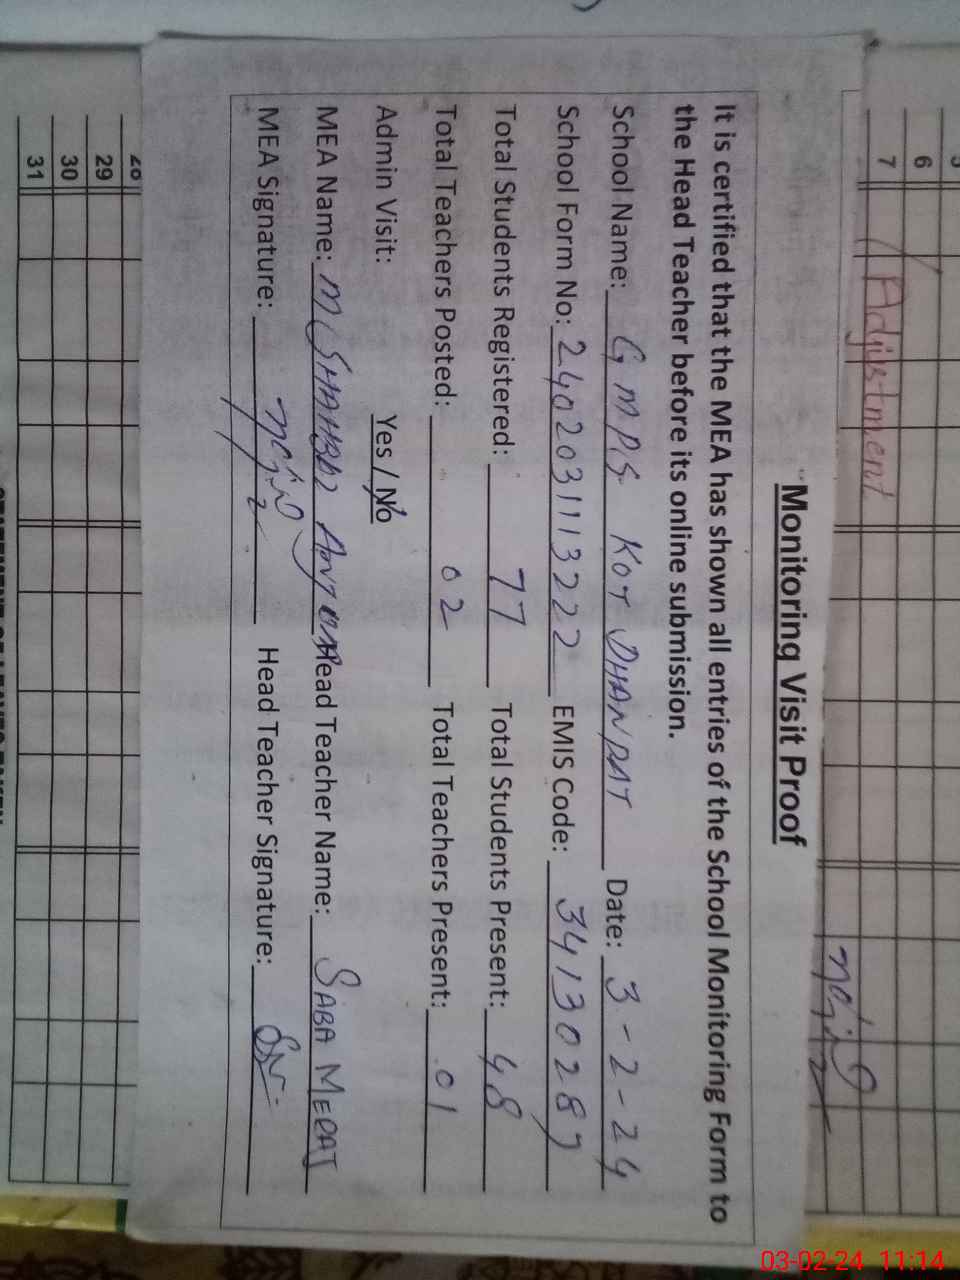 5
6
7 Adjustment
Monitoring Visit Proof
It is certified that the MEA has shown all entries of the School Monitoring Form to
the Head Teacher before its online submission.
School Name: GMPS KOT DHANPAT Date: 3-2-24
School Form No: 2402031113222 EMIS Code: 34130289
Total Students Registered: 77 Total Students Present: 48
Total Teachers Posted: 02 Total Teachers Present: 01
Admin Visit: Yes / No
MEA Name: Head Teacher Name: SABA MERAJ
MEA Signature: Head Teacher Signature:
28
29
30
31
03-02-24 11:14